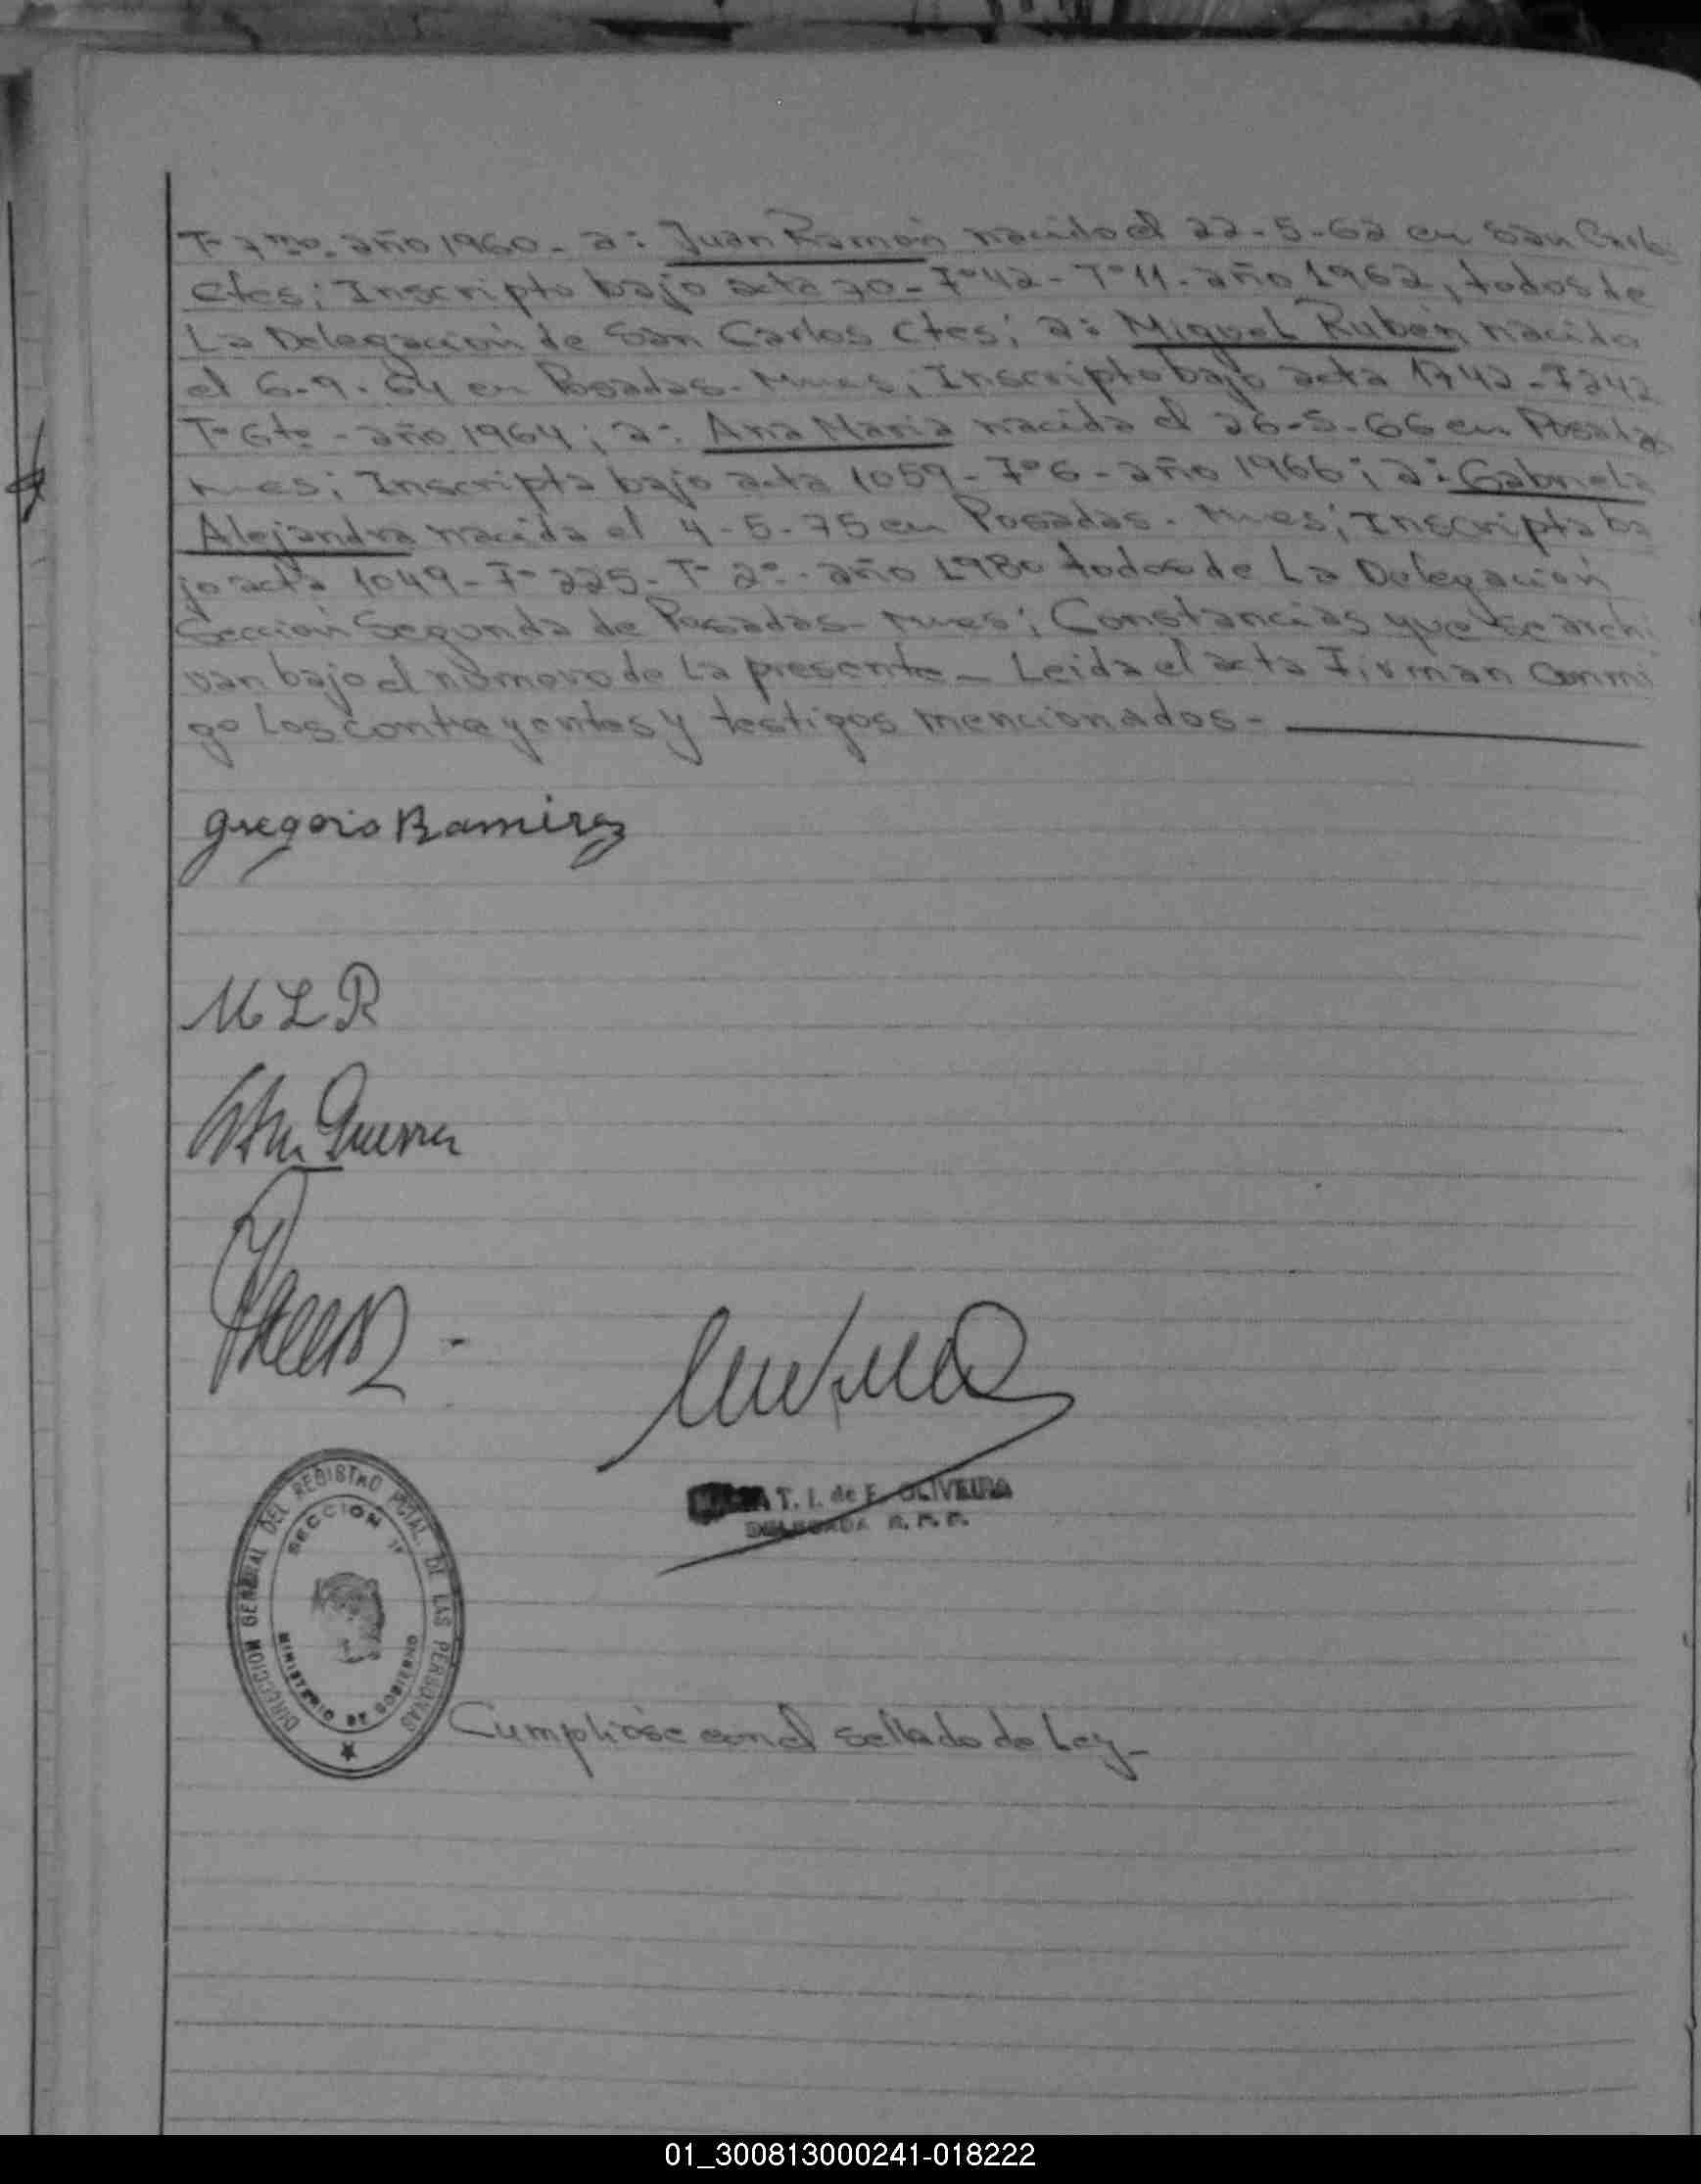 Tº 7mo. año 1960 - a: Juan Ramón nacido el 22-5-62 en San
Ctes; Inscripto bajo acta 70 - Fº 42 - Tº 11 - año 1962, todos de
La Delegación de San Carlos Ctes; a: Miguel Rubén nacido
el 6-9-64 en Posadas - Mnes; Inscripto bajo acta 1742 - F 242
Tº 6to - año 1964; a: Ana Maria nacida el 26-5-66 en Posadas
Mnes; Inscripta bajo acta 1059 - Fº 6 - año 1966; a: Gabriela
Alejandra nacida el 4-5-75 en Posadas - Mnes; Inscripta ba
jo acta 1049 - Fº 225 - Tº 2º - año 1980 todos de La Delegación
Sección Segunda de Posadas - Mnes; Constancias que se archi
van bajo el número de la presente - Leida el acta Firman conmi
go los contrayentes y testigos mencionados -
Gregorio Ramirez
M L R
Guerra
T. I. de F. OLIVEIRA
DELEGADA R. P. P.
DIRECCION GENERAL DEL REGISTRO PCIAL. DE LAS PERSONAS
SECCION
MINISTERIO DE GOBIERNO
Cumpliose con el sellado de Ley -
01_300813000241-018222